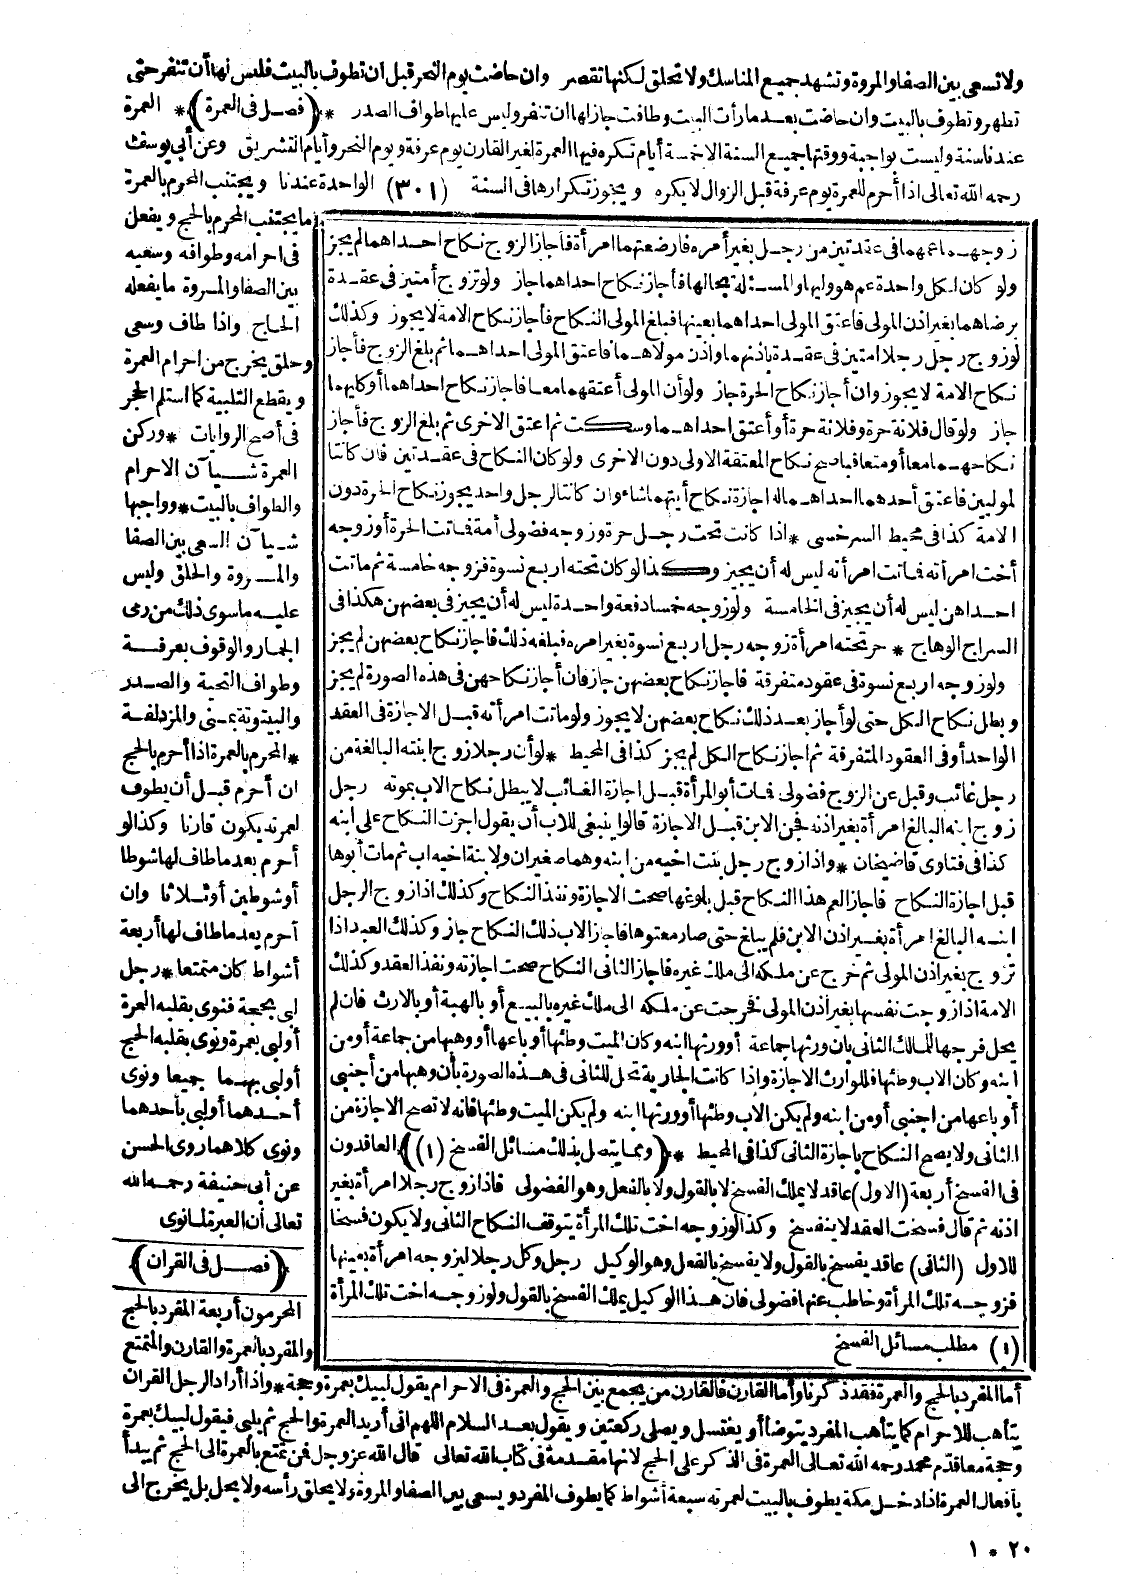 ولا تسعى بين الصفا والمروة وتشهد جميع المناسك ولا تحلق لكنها تقصر وان حاضت يوم النحر قبل ان تطوف بالبيت فليس لها أن تنفر حتى
تطهر وتطوف بالبيت وان حاضت بعد ما رأت البيت وطافت جاز لها ان تنفر وليس عليها طواف الصدر * ﴿فصل فى العمرة﴾ * العمرة
عندنا سنة وليست بواجبة ووقتها جميع السنة الا خمسة أيام تكره فيها العمرة لغير القارن يوم عرفة ويوم النحر وأيام التشريق وعن أبي يوسف
رحمه الله تعالى اذا أحرم للعمرة يوم عرفة قبل الزوال لا يكره ويجوز تكرارها فى السنة (٣٠١) الواحدة عندنا ويجتنب المحرم بالعمرة
ما يجتنب المحرم بالحج ويفعل
فى احرامه وطوافه وسعيه
بين الصفا والمروة ما يفعله
الحاج واذا طاف وسعى
وحلق يخرج من احرام العمرة
ويقطع التلبية كما استلم الحجر
فى أصح الروايات * وركن
العمرة شيآن الاحرام
والطواف بالبيت * وواجبها
شيآن السعى بين الصفا
والمروة والحلق وليس
عليه ما سوى ذلك من رمى
الجمار والوقوف بعرفة
وطواف التحية والصدر
والبيتوتة بمنى والمزدلفة
* المحرم بالعمرة اذا أحرم بالحج
ان أحرم قبل أن يطوف
لعمرته يكون قارنا وكذا لو
أحرم بعد ما طاف لها شوطا
أو شوطين أو ثلاثا وان
أحرم بعد ما طاف لها أربعة
أشواط كان متمتعا * رجل
لبى بحجة فنوى بقلبه العمرة
أولبى بعمرة ونوى بقلبه الحج
أولبى بهما جميعا ونوى
أحدهما أولبى بأحدهما
ونوى كلاهما روى الحسن
عن أبى حنيفة رحمه الله
تعالى أن العبرة لما نوى
﴿فصل فى القران﴾
المحرمون أربعة المفرد بالحج
والمفرد بالعمرة والقارن والمتمتع
زوجهما عمهما فى عقدتين من رجل بغير أمره فارضعتهما امرأة فأجاز الزوج نكاح احداهما لم يجز
ولو كان لكل واحدة عم هو وليها والمسئلة بحالها فأجاز نكاح احداهما جاز ولو تزوج أمتين فى عقدة
برضاهما بغير اذن المولى فاعتق المولى احداهما بعينها فبلغ المولى النكاح فأجاز نكاح الامة لا يجوز وكذلك
لو زوج رجل رجلا امتين فى عقدة باذنهما واذن مولاهما فاعتق المولى احداهما ثم بلغ الزوج فأجاز
نكاح الامة لا يجوز وان أجاز نكاح الحرة جاز ولو أن المولى أعتقهما معا فأجاز نكاح احداهما أو كليهما
جاز ولو قال فلانة حرة وفلانة حرة أو أعتق احداهما وسكت ثم اعتق الاخرى ثم بلغ الزوج فأجاز
نكاحهما معا أو متعاقبا صح نكاح المعتقة الاولى دون الاخرى ولو كان النكاح فى عقدتين فان كانتا
لموليين فاعتق أحدهما احداهما له اجازة نكاح أيتهما شاء وان كانتا لرجل واحد يجوز نكاح الحرة دون
الامة كذا فى محيط السرخسى * اذا كانت تحت رجل حرة وزوجه فضولى أمة فماتت الحرة أو زوجه
أخت امرأته فماتت امرأته ليس له أن يجيز وكذا لو كان تحته اربع نسوة فزوجه خامسة ثم ماتت
احداهن ليس له أن يجيز فى الخامسة ولو زوجه خمسا دفعة واحدة ليس له أن يجيز فى بعضهن هكذا فى
السراج الوهاج * حر تحته امرأة زوجه رجل اربع نسوة بغير امره فبلغه ذلك فأجاز نكاح بعضهن لم يجز
ولو زوجه اربع نسوة فى عقود متفرقة فاجاز نكاح بعضهن جاز فان أجاز نكاحهن فى هذه الصورة لم يجز
وبطل نكاح الكل حتى لو أجاز بعد ذلك نكاح بعضهن لا يجوز ولو ماتت امرأته قبل الاجازة فى العقد
الواحد أو فى العقود المتفرقة ثم اجاز نكاح الكل لم يجز كذا فى المحيط * لو أن رجلا زوج ابنته البالغة من
رجل غائب وقبل عن الزوج فضولى فمات أبو المرأة قبل اجازة الغائب لا يبطل نكاح الاب بموته رجل
زوج ابنه البالغ امرأة بغير اذنه فجن الابن قبل الاجازة قالوا ينبغى للاب أن يقول اجزت النكاح على ابنه
كذا فى فتاوى قاضيخان * واذا زوج رجل بنت اخيه من ابنه وهما صغيران ولابنة اخيه اب ثم مات أبوها
قبل اجازة النكاح فاجاز العم هذا النكاح قبل بلوغها صحت الاجازة ونفذ النكاح وكذلك اذا زوج الرجل
ابنه البالغ امرأة بغير اذن الابن فلم يبلغ حتى صار معتوها فاجاز الاب ذلك النكاح جاز وكذلك العبد اذا
تزوج بغير اذن المولى ثم خرج عن ملكه الى ملك غيره فاجاز الثانى النكاح صحت اجازته ونفذ العقد وكذلك
الامة اذا زوجت نفسها بغير اذن المولى فخرجت عن ملكه الى ملك غيره بالبيع أو بالهبة أو بالارث فان لم
يحل فرجها للمالك الثانى بان ورثها جماعة أو ورثها ابنه وكان الميت وطئها أو باعها أو وهبها من جماعة أو من
ابنه وكان الاب وطئها فللوارث الاجازة واذا كانت الجارية تحل للثانى فى هذه الصورة بأن وهبها من أجنبى
أو باعها من اجنبى أو من ابنه ولم يكن الاب وطئها أو ورثها ابنه ولم يكن الميت وطئها فانه لا تصح الاجازة من
الثانى ولا يصح النكاح باجازة الثانى كذا فى المحيط * ﴿ومما يتصل بذلك مسائل الفسخ (١)﴾ العاقدون
فى الفسخ أربعة (الاول) عاقد لا يملك الفسخ لا بالقول ولا بالفعل وهو الفضولى فاذا زوج رجلا امرأة بغير
اذنه ثم قال فسخت العقد لا ينفسخ وكذا لو زوجه اخت تلك المرأة يتوقف النكاح الثانى ولا يكون فسخا
للاول (الثانى) عاقد يفسخ بالقول ولا يفسخ بالفعل وهو الوكيل رجل وكل رجلا ليزوجه امرأة بعينها
فزوجه تلك المرأة وخاطب عنها فضولى فان هذا الوكيل يملك الفسخ بالقول ولو زوجه اخت تلك المرأة
(١) مطلب مسائل الفسخ
أما المفرد بالحج والعمرة فقد ذكرنا وأما القارن فالقارن من يجمع بين الحج والعمرة فى الاحرام يقول لبيك بعمرة وحجة * واذا أراد الرجل القران
يتأهب للاحرام كما يتأهب المفرد يتوضأ أو يغتسل ويصلى ركعتين ويقول بعد السلام اللهم انى أريد العمرة والحج ثم يلبى فيقول لبيك بعمرة
وحجة معا قدم محمد رحمه الله تعالى العمرة فى الذكر على الحج لانها مقدمة فى كتاب الله تعالى قال الله عز وجل فمن تمتع بالعمرة الى الحج ثم يبدأ
بأفعال العمرة اذا دخل مكة يطوف بالبيت لعمرته سبعة أشواط كما يطوف المفرد ويسعى بين الصفا والمروة ولا يحلق رأسه ولا يحل بل يخرج الى
٢٠ * ١